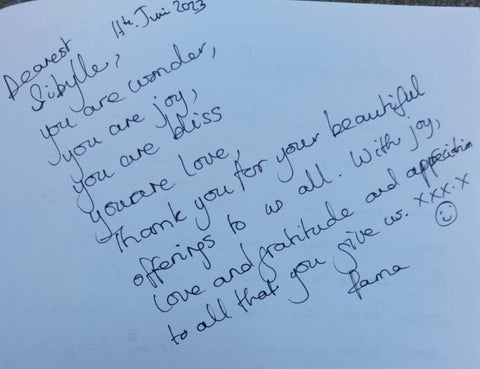 11th. Juni 2023
Dearest
Sibylle,
you are wonder,
you are joy,
you are bliss
you are love,
Thank you for your beautiful
offerings to us all. With joy,
love and gratitude and appreciation
to all that you give us. xxx.x
Rama